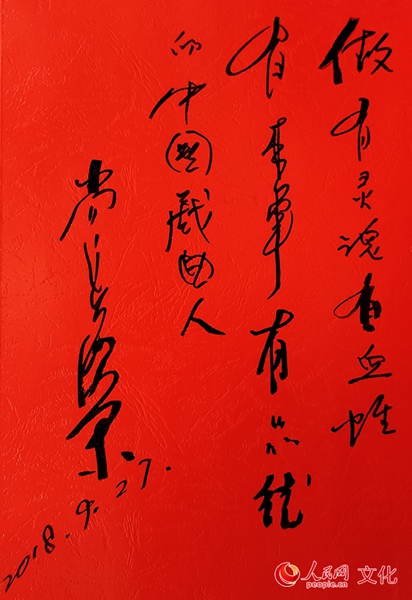 做有灵魂有血性
有本事有品德
的中國戏曲人
尚长荣
2018.9.27.
人民网 文化
people.cn